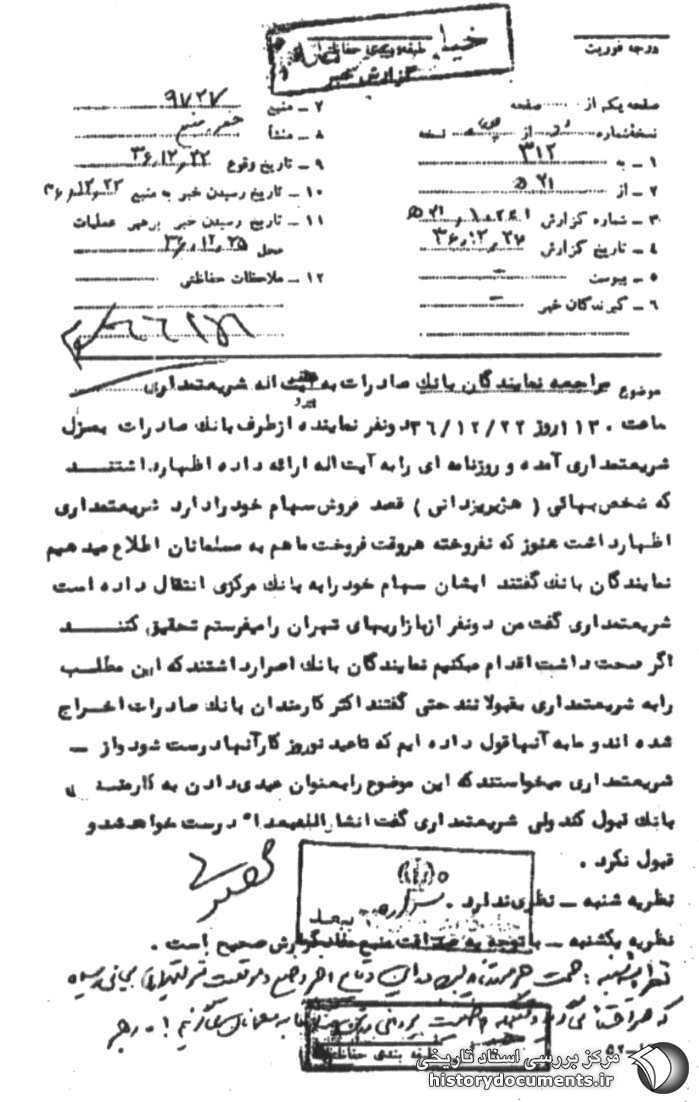 خیلی
طبقه‌بندی حفاظتی
گزارش خبر
درجه فوریت
صفحه یک از صفحه
نسخه شماره از نسخه
۱ ـ به ۳۱۲
۲ ـ از ۲۱ ه
۳ ـ شماره گزارش
۴ ـ تاریخ گزارش ۳۶،۱۲،۲۷
۵ ـ پیوست ـ
۶ ـ گیرندگان خبر ـ
۷ ـ منبع ۹۷۲۷
۸ ـ منشأ
۹ ـ تاریخ وقوع ۳۶،۱۲،۲۲
۱۰ ـ تاریخ رسیدن خبر به منبع ۳۶،۱۲،۲۲
۱۱ ـ تاریخ رسیدن خبر برهبر عملیات
محل ۳۶،۱۲،۲۵
۱۲ ـ ملاحظات حفاظتی
موضوع مراجعه نمایندگان بانک صادرات به آیت اله شریعتمداری
ساعت ۱۱۳۰ روز ۳۶/۱۲/۲۲ دونفر نماینده ازطرف بانک صادرات بمنزل
شریعتمداری آمده و روزنامه ای را به آیت اله ارائه داده اظهارداشتند
که شخص بهائی ( هژبریزدانی ) قصد فروش سهام خودرا دارد شریعتمداری
اظهارداشت هنوز که نفروخته هروقت فروخت ماهم به مسلمانان اطلاع میدهیم
نمایندگان بانک گفتند ایشان سهام خودرا به بانک مرکزی انتقال داده است
شریعتمداری گفت من دونفر ازبازاریهای تهران را میفرستم تحقیق کننـد
اگر صحت داشت اقدام میکنیم نمایندگان بانک اصرارداشتندکه این مطلب
رابه شریعتمداری بقبولانند حتی گفتند اکثر کارمندان بانک صادرات اخراج
شده اندو مابه آنها قول داده ایم که تاعید نوروز کارآنها درست شود واز ـ
شریعتمداری میخواستندکه این موضوع رابعنوان عیدی دادن به کارمند
بانک قبول کندولی شریعتمداری گفت انشاءالله بعدا" درست خواهدشد و
قبول نکرد .
نظریه شنبه ـ نظری ندارد .
نظریه یکشنبه ـ باتوجه به صداقت منبع مفاد گزارش صحیح است .
طبقه بندی حفاظتی
مرکز بررسی اسناد تاریخی
historydocuments.ir